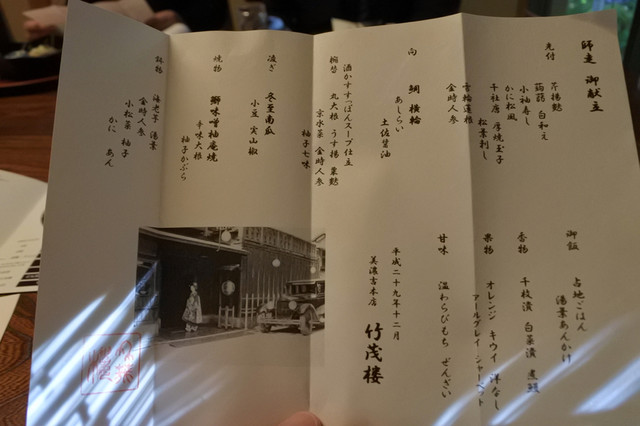 師走 御献立
先付
芹 揚麩
蒟蒻 白和え
小袖寿し
かに松風
千社唐 厚焼玉子
松葉刺し
青輪蓮根
金時人参
向
鯛 横輪
あしらい
土佐醤油
椀替
酒かすすっぽんスープ仕立
丸大根 うす揚 粟麩
京水菜 金時人参
柚子七味
凌ぎ
冬至南瓜
小豆 実山椒
焼物
鰤味噌柚庵焼
辛味大根
柚子かぶら
鉢物
海老芋 湯葉
金時人参
小松菜 柚子
かに あん
御飯
占地ごはん
湯葉あんかけ
香物
千枚漬 白菜漬
果物
オレンジ キウイ 洋なし
アールグレイ シャーベット
甘味
温わらびもち ぜんざい
平成二十九年十二月
美濃吉本店
竹茂楼